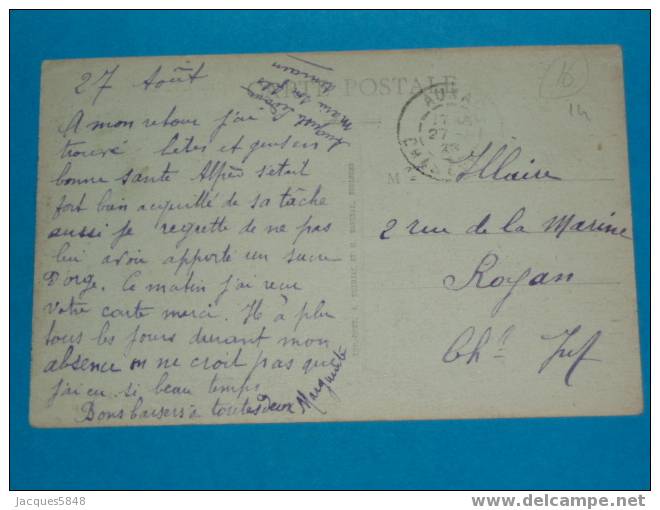 27 Août
CARTE POSTALE
A mon retour j'ai
trouvé bêtes et gens en
bonne santé Alfred s'était
fort bien acquitté de sa tâche
aussi je regrette de ne pas
lui avoir apporté un sucre
D'orge. Ce matin j'ai reçu
votre carte merci. Il à plu
tous les jours durant mon
absence on ne croit pas que
j'ai eu si beau temps
Bons baisers à toutes deux
Marguerite
M Illaire
2 rue de la Marine
Royan
Ch. Inf
16
14
Jacques5848
www.delcampe.net